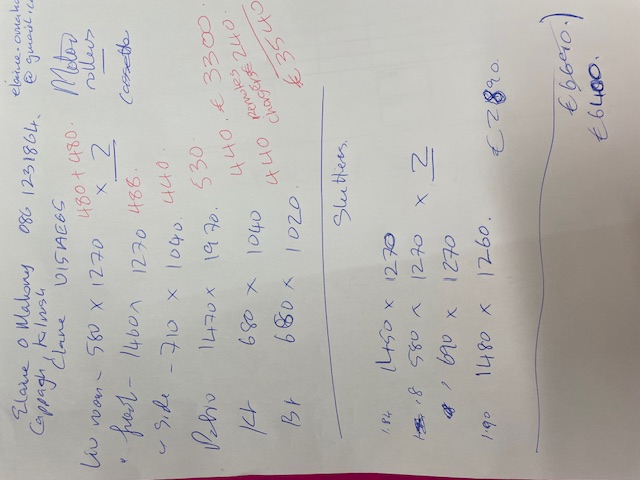 Elaine O Mahony 086 1231864. elaine.omaha
Cappagh, Kilrush @ gmail.c
Clare V15AE65 Motor
rollers
Liv room - 580 x 1270 x 2 480 + 480.
" front - 1460 x 1270 488. cassette
" side - 710 x 1040. 440.
Patio 1470 x 1970. 530
Kt 680 x 1040 440. € 3300.
Br 680 x 1020. 440 remotes chargers € 240
€ 3540
Shutters.
1.84 1450 x 1270
.8 580 x 1270 x 2
, 690 x 1270
1.90 1480 x 1260. €2890.
€6690.)
€6400.